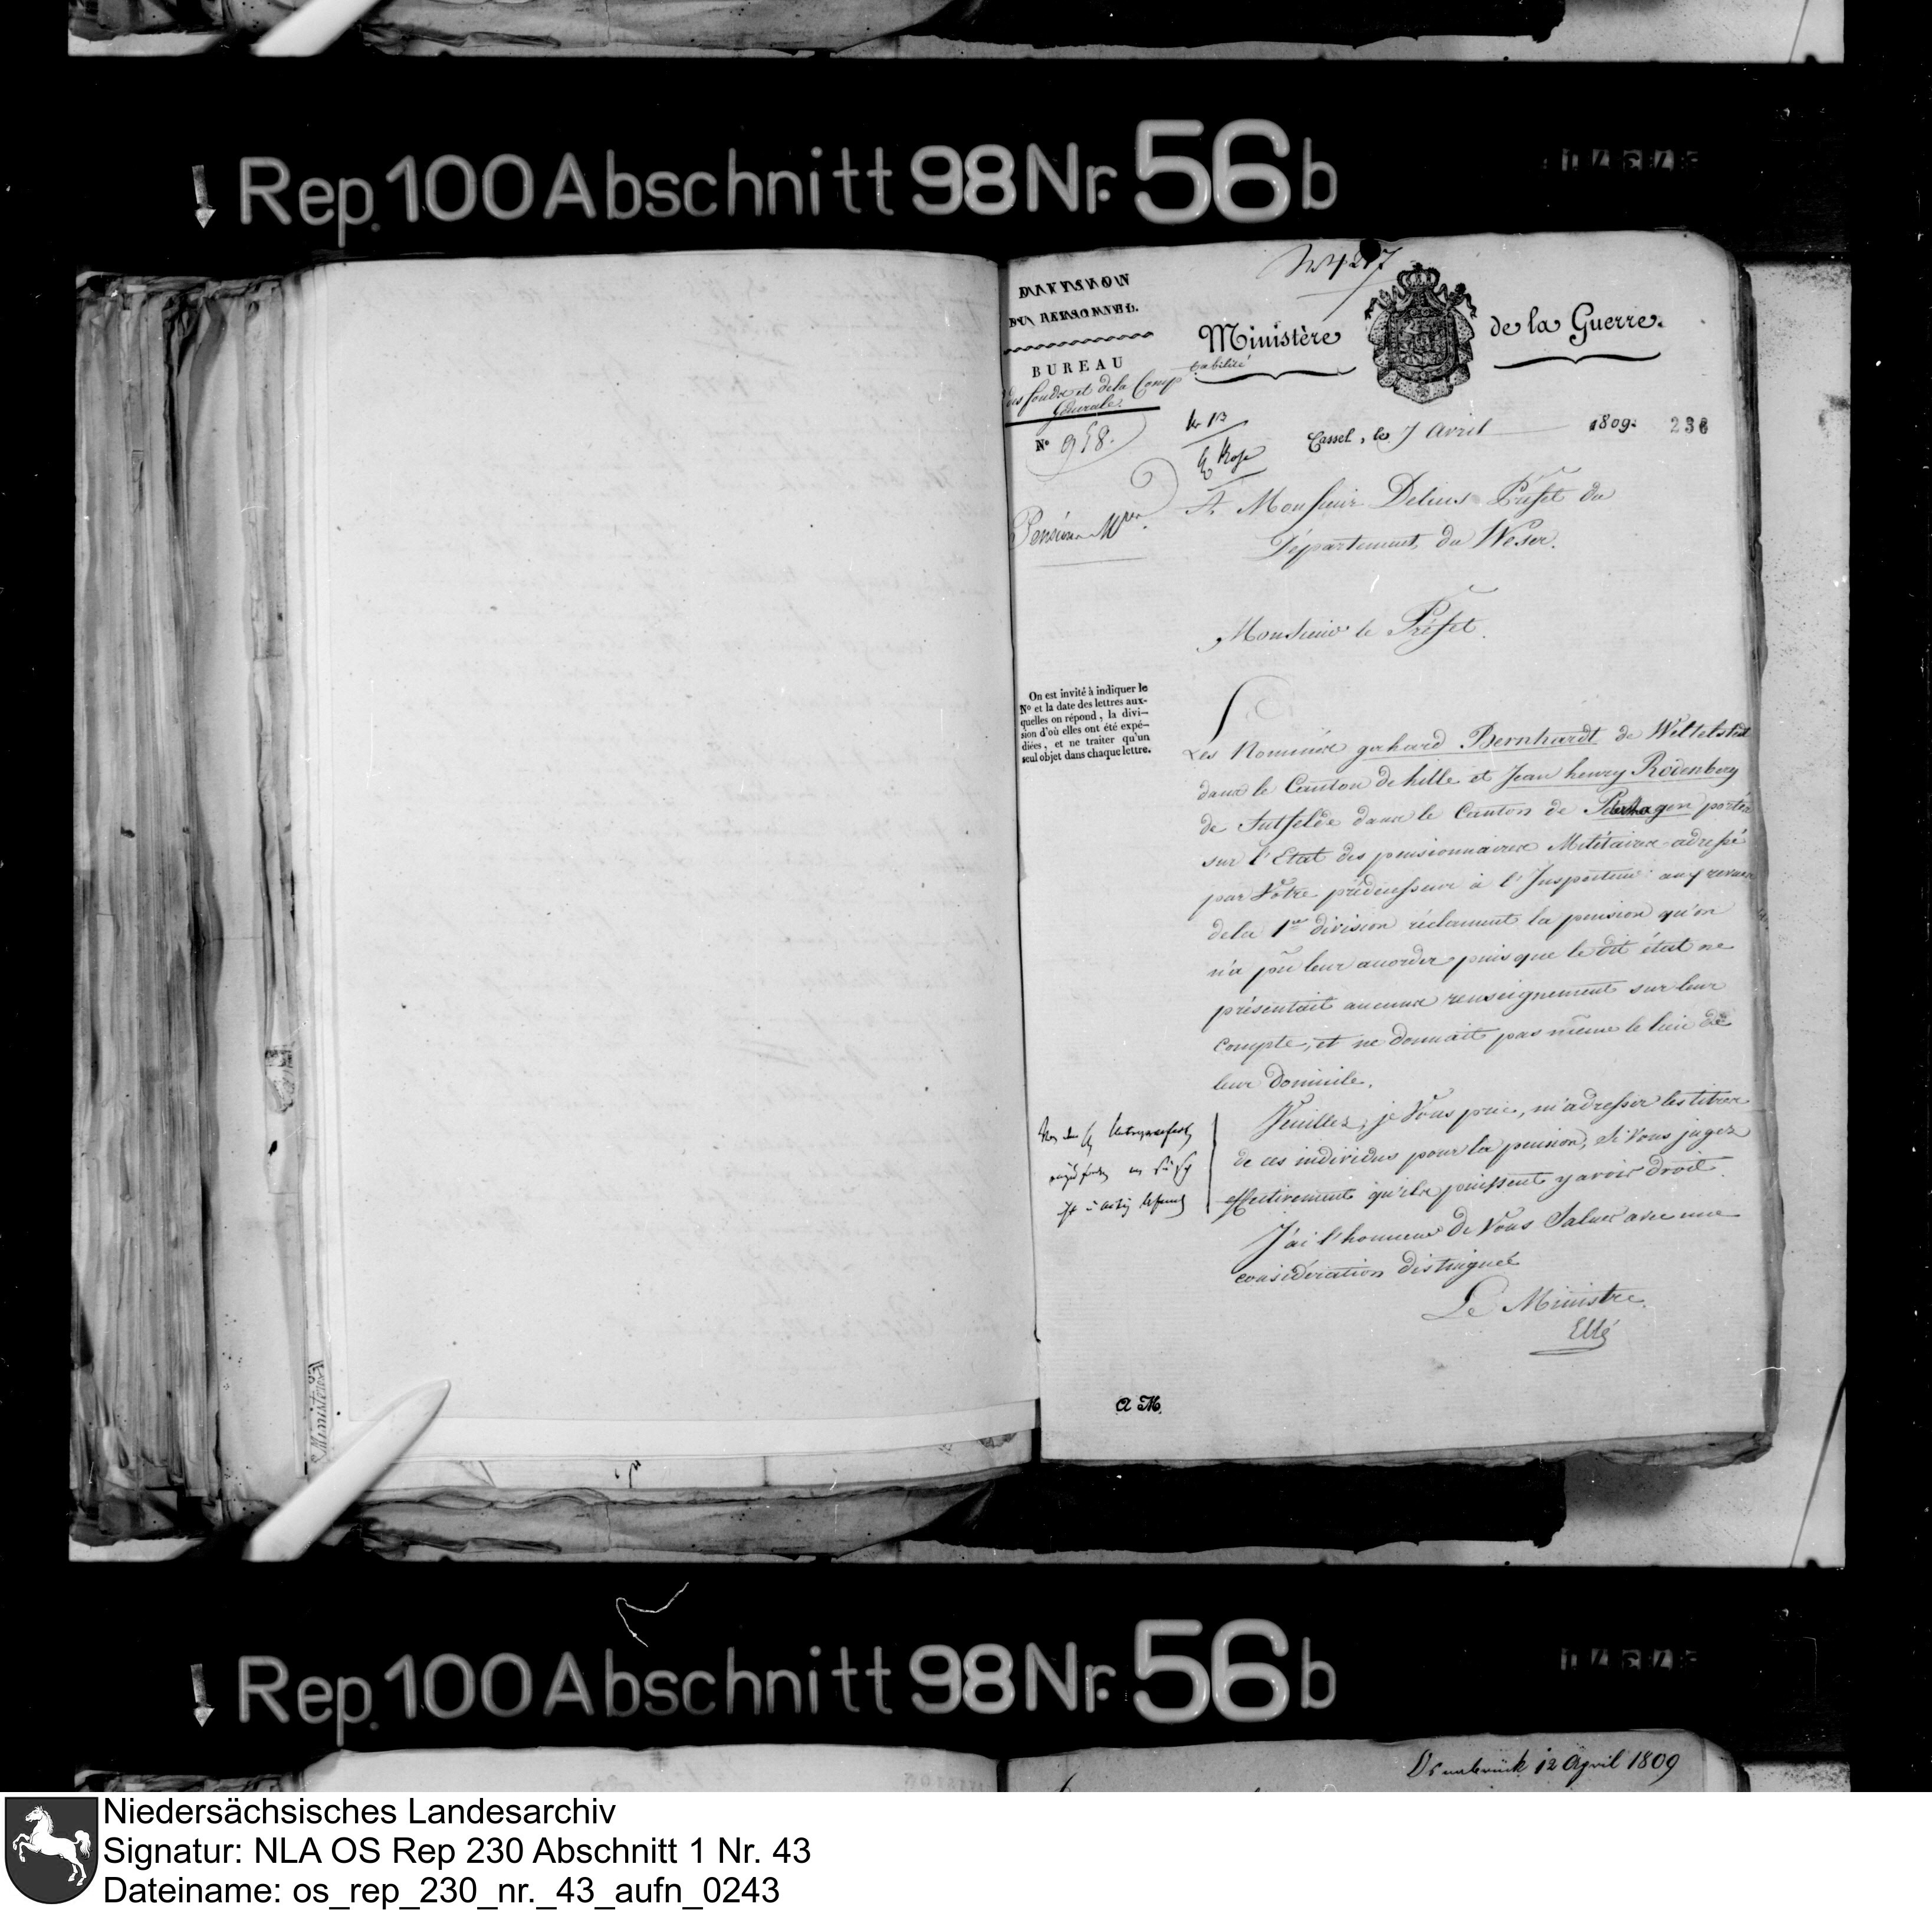 Rep. 100 Abschnitt 98 Nr. 56 b
DIVISION
DU PERSONNEL.
BUREAU
des fonds et de la Comptabilité
Générale.
Nº 958.
Ministère de la Guerre.
Cassel, le 7 Avril 1809. 236
A Monsieur Delius Préfet du
Département du Weser.
Monsieur le Préfet.
On est invité à indiquer le
Nº et la date des lettres aux-
quelles on répond, la divi-
sion d'où elles ont été expé-
diées, et ne traiter qu'un
seul objet dans chaque lettre.
Les Nommés gerhard Bernhardt de
dans le Canton de hille et Jean henry Rodenberg
de dans le Canton de portés
sur l'Etat des pensionnaires Militaires adressé
par Votre prédécesseur à l'Inspecteur aux revues
de la 1re division réclament la pension qu'on
n'a pû leur accorder puisque le dit état ne
présentait aucuns renseignements sur leur
compte, et ne donnait pas même le lieu de
leur domicile.
Veuillez, je Vous prie, m'adresser les titres
de ces individus pour la pension, Si Vous jugez
effectivement qu'ils puissent y avoir droit.
J'ai l'honneur de Vous Saluer avec une
considération distinguée
Le Ministre.
Eblé
A M.
Ministère
Rep. 100 Abschnitt 98 Nr. 56 b
Osnabrück 12 April 1809
Niedersächsisches Landesarchiv
Signatur: NLA OS Rep 230 Abschnitt 1 Nr. 43
Dateiname: os_rep_230_nr._43_aufn_0243